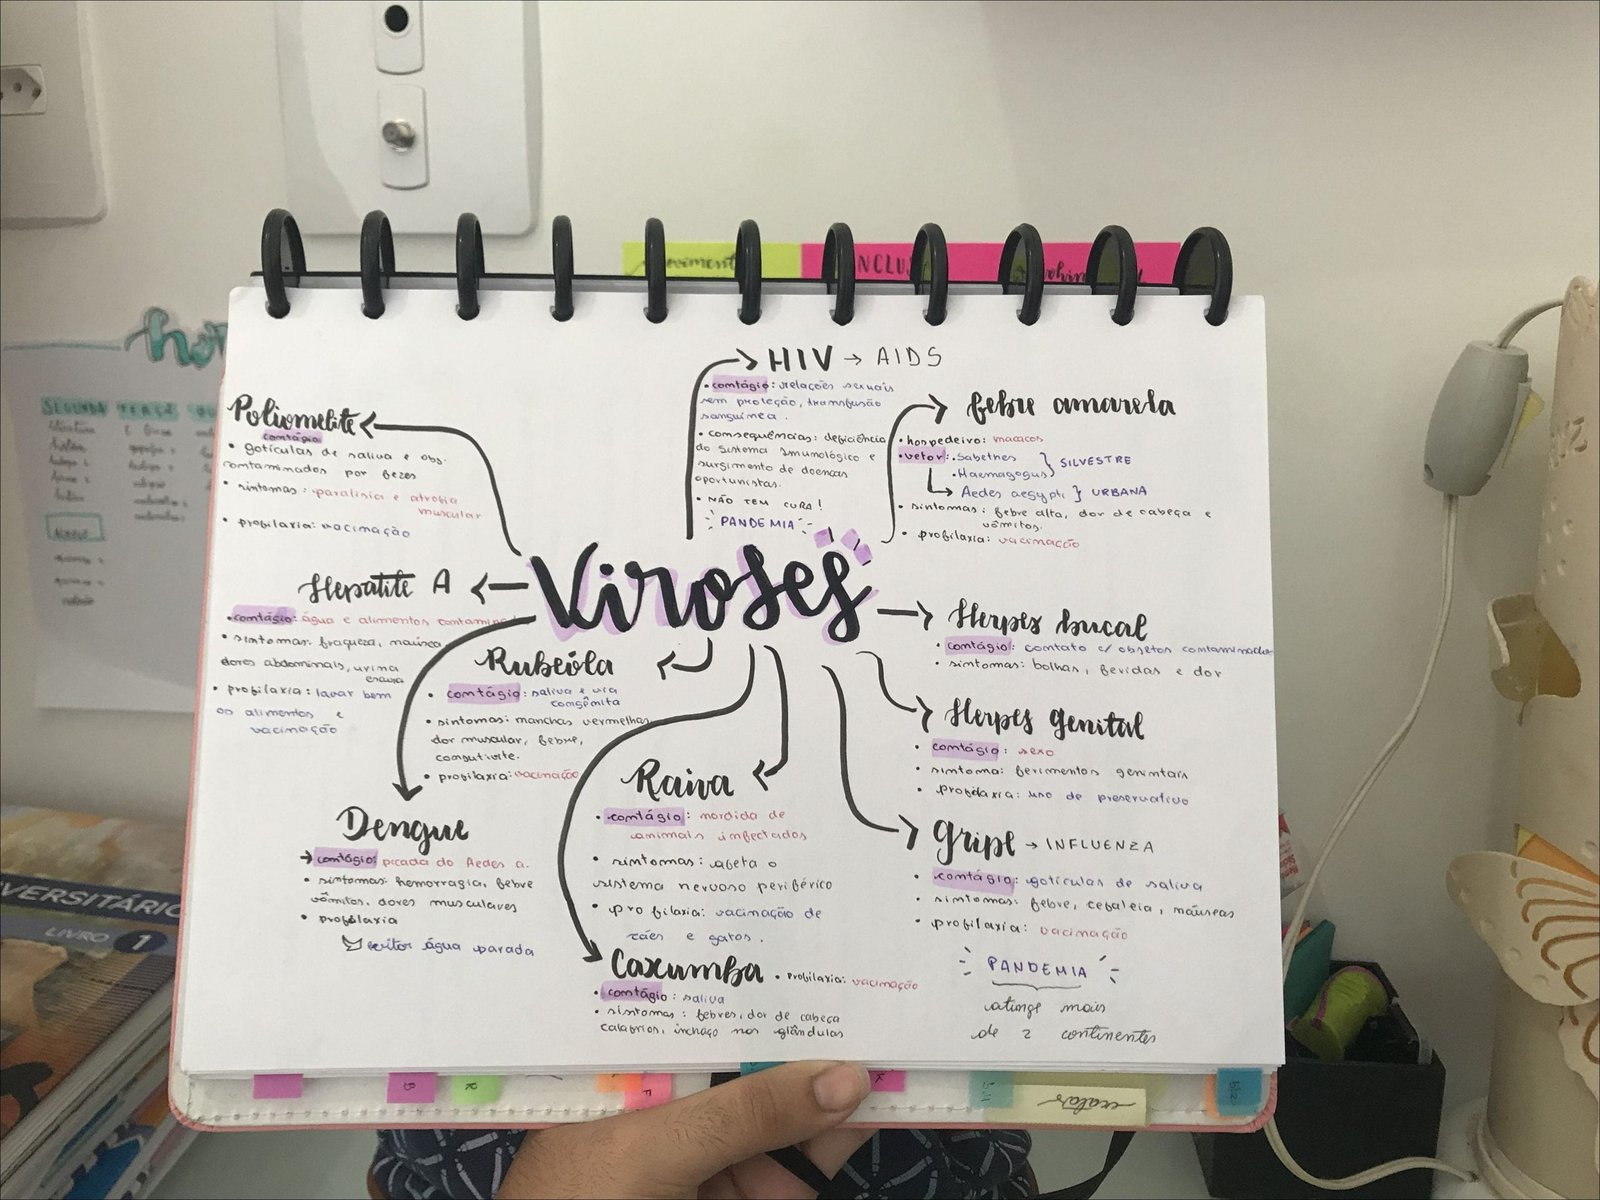 INCLU
hor
SEGUNDA TERÇA
Viroses
HIV → AIDS
• contágio: relações sexuais
sem proteção, transfusão
sanguínea.
• consequências: deficiência
do sistema imunológico e
surgimento de doenças
oportunistas.
• NÃO TEM CURA!
PANDEMIA
febre amarela
• hospedeiro: macacos
• vetor: • Sabethes
• Haemagogus } SILVESTRE
Aedes aegypti } URBANA
• sintomas: febre alta, dor de cabeça e
vômitos.
• profilaxia: vacinação
Poliomelite
contágio
• gotículas de saliva e obs.
contaminados por fezes
• sintomas: paralisia e atrofia
muscular
• profilaxia: vacinação
Hepatite A
• contágio: água e alimentos contamin
• sintomas: fraqueza, náusea
dores abdominais, urina
escura
• profilaxia: lavar bem
os alimentos e
vacinação
Rubéola
• contágio: saliva e via
congênita
• sintomas: manchas vermelhas
dor muscular, febre,
conjutivite.
• profilaxia: vacinação
Herpes bucal
• contágio: contato c/ objetos contaminados
• sintomas: bolhas, feridas e dor
Herpes genital
• contágio: sexo
• sintoma: ferimentos genintais
• profilaxia: uso de preservativo
Dengue
→ contágio: picada do Aedes a.
• sintomas: hemorragia, febre
vômitos, dores musculares
• profilaxia
evitar água parada
Raiva
• contágio: mordida de
animais infectados
• sintomas: afeta o
sistema nervoso periférico
• profilaxia: vacinação de
cães e gatos.
Gripe → INFLUENZA
• contágio: gotículas de saliva
• sintomas: febre, cefaleia, náuseas
• profilaxia: vacinação
PANDEMIA
atinge mais
de 2 continentes
Caxumba • profilaxia: vacinação
• contágio: saliva
• sintomas: febres, dor de cabeça
calafrios, inchaço nas glândulas
VERSITÁRIO
LIVRO 1
B
R
F
K